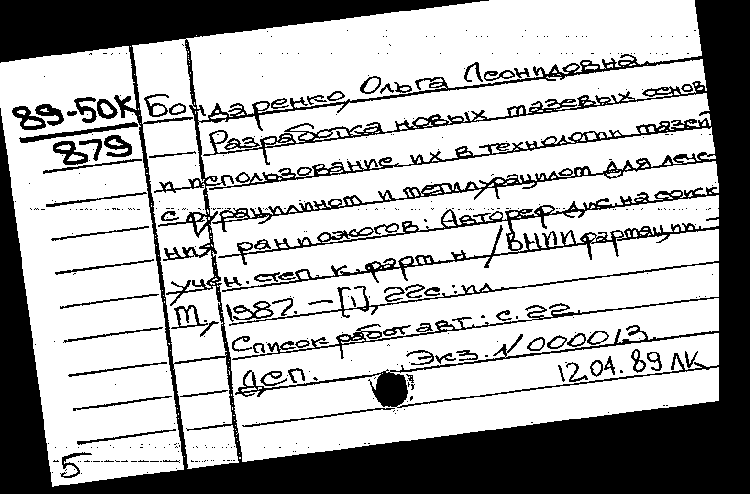 89-50К Бондаренко, Ольга Леонидовна.
879 Разработка новых мазевых основ
и использование их в технологии мазей
с фурацилином и метилурацилом для лече-
ния ран и ожогов: Автореф. дис. на соиск.
учен. степ. к. фарм. н. / ВНИИ фармации. –
М., 1987. – [1], 22 с.: ил.
Список работ авт.: с. 22.
Д,сп. Экз. N 000013.
12.04.89 ЛК
5